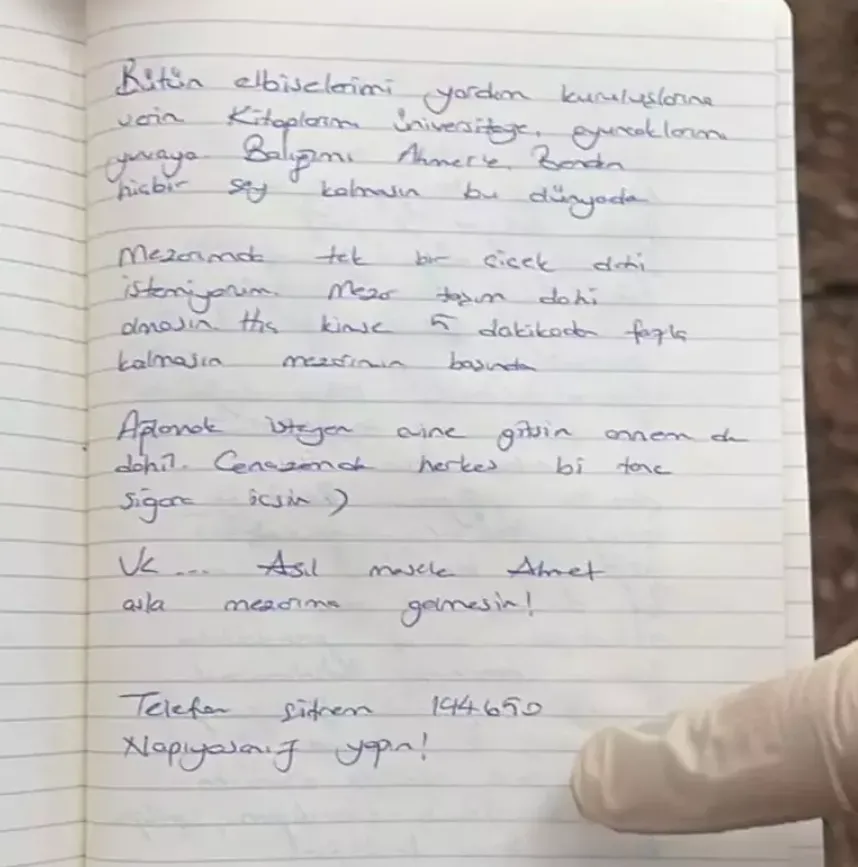 Bütün elbiselerimi yardım kuruluşlarına
verin Kitaplarımı üniversiteye, oyuncaklarımı
yuvaya. Balığımı Ahmet'e. Benden
hiçbir şey kalmasın bu dünyada
Mezarımda tek bir çiçek dahi
istemiyorum. Mezar taşım dahi
olmasın. Hiç kimse 5 dakikadan fazla
kalmasın mezarımın başında
Ağlamak isteyen evine gitsin annem de
dahil. Cenazemde herkes bi tane
sigara içsin :)
Ve ... Asıl mesele Ahmet
asla mezarıma gelmesin!
Telefon şifrem 194650
Napıyosanız yapın!